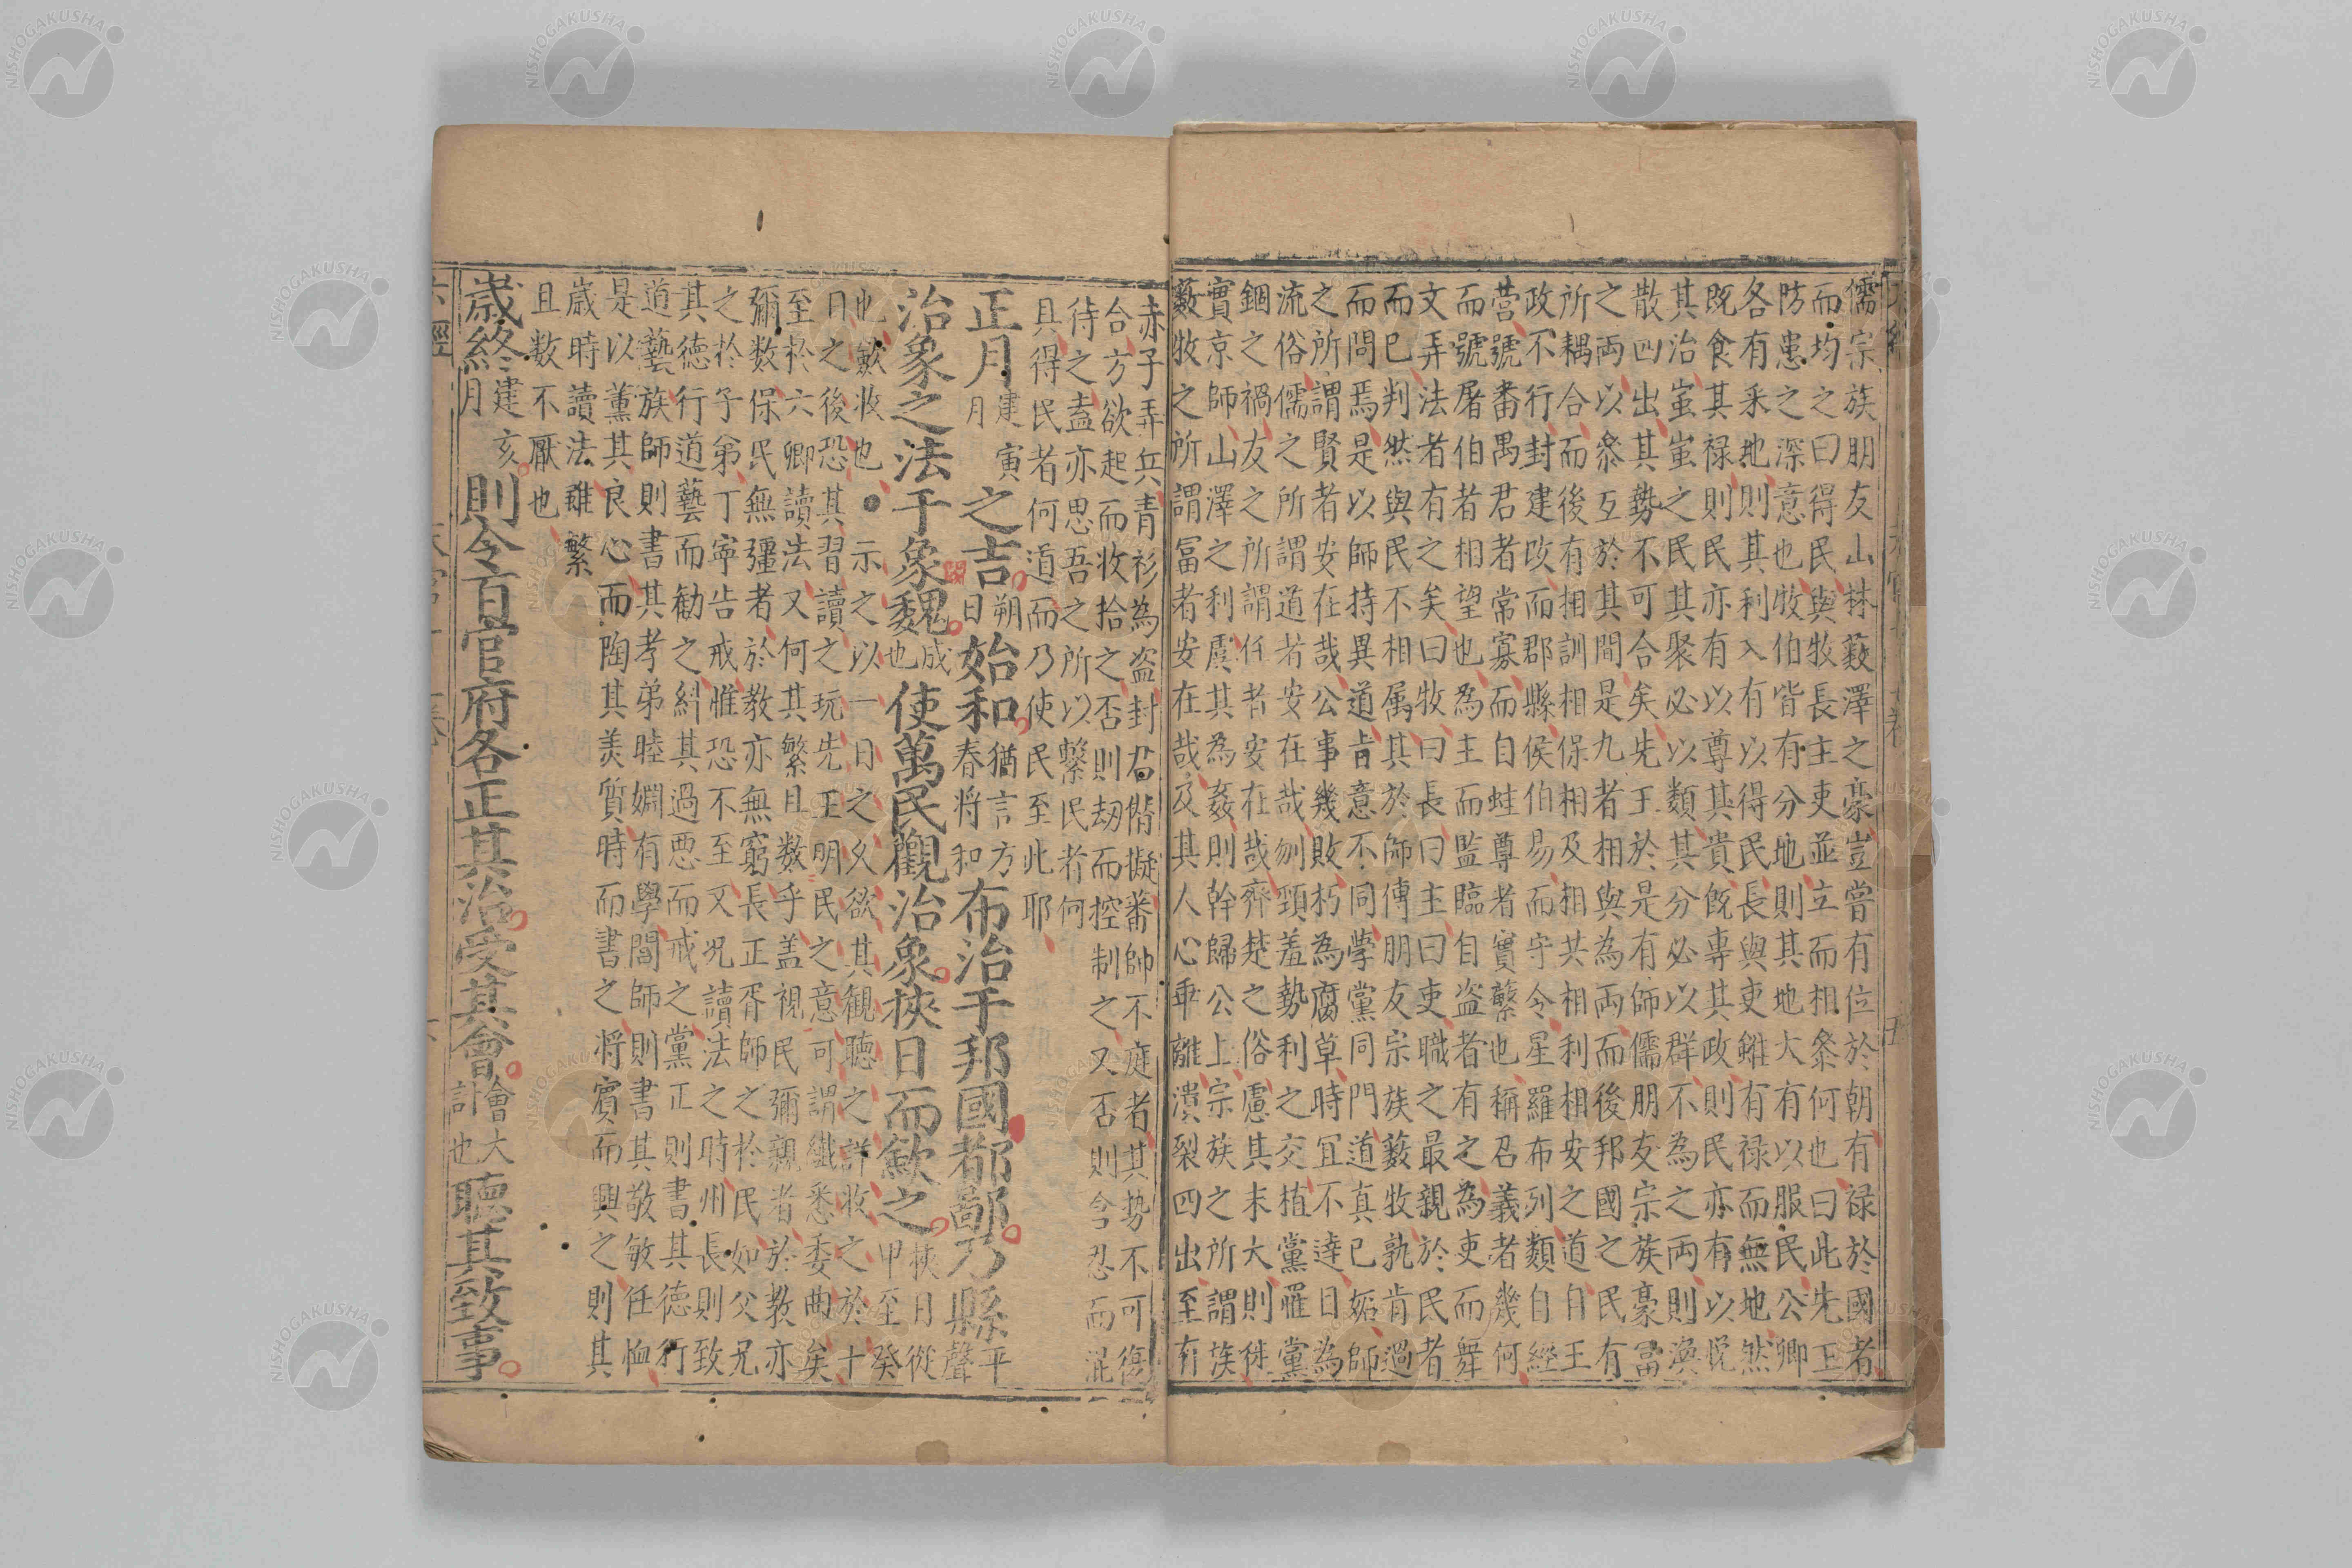 儒宗族朋友山林藪澤之豪豈嘗有位於朝有禄於國者
而均之曰得民與牧長主吏並立而相叅何也曰此先王
防患之深意也牧伯皆有分地則其地大有以服民公卿
各有采地則其利入有以得民長與吏雖有禄而無地然
既食其禄則民亦有以尊其貴既專其政則民亦有以悦
其治蚩蚩之民其聚必以類其分必以群不為之兩則渙
散四出其勢不可合矣先王於是有師儒朋友宗族豪富
之兩以叅互於其間是九者相與為兩而後邦國之民有
所耦合而後有相訓相保相及相共相利相安之道自王
政不行封建改而郡縣侯伯易而守令星羅布列類自經
營號畨禺君者常寡而自蛙尊者實蘩也稱召義者幾何
而號屠伯者相望也為主而監臨自盗者有之為吏而舞
文弄法者有之矣曰牧曰長曰主曰吏職之最親於民者
而已判然與民不相属其於師傳朋友宗族藪牧孰肯過
而問焉是以師持異道㫖意不同學黨同門道真已妬師
之所謂賢者安在哉公事幾敗朽為腐草時宜不逹日為
流俗儒之所謂道者安在哉刎頸羞勢利之交植黨罹黨
錮之禍友之所謂任者安在哉齊楚之俗慮其末大則徙
實京師山澤之利虞其為姦則幹歸公上宗族之所謂族
藪牧之所謂冨者安在哉及其人心乖離潰裂四出至有
赤子弄兵青衫為盗封君階擬畨帥不庭者其勢不可復
合方欲起而收拾之否則劫而控制之又否則含忍而混
待之盍亦思吾之所以繫民者何
具得民者何道而乃使民至此耶
正月建寅月之吉朔日始和猶言方春将和布治于邦國都鄙乃縣平聲
治象之法于象魏成也使萬民觀治象挾日而歛之挾日從甲至癸
也歛收也●示之以一日之久欲其觀聽之詳收之於十
日之後恐其習讀之玩先王明民之意可謂纎悉委曲矣
至於六卿讀法又何其繁且数乎盖視民彌親者於教亦
彌数保民無彊者於教亦無窮長正胥師之於民如父兄
之於子弟丁寧告戒惟恐不至又况讀法之時州長則致
其徳行道藝而勸之糾其過惡而戒之黨正則書其徳行
道藝族師則書其孝弟睦婣有學閭師則書其敬敏任恤
是以薫其良心而陶其美質時而書之将賓而興之則其
歳時讀法雖繁
且数不厭也
歳終建亥月則令百官府各正其治受其會會大計也聽其致事